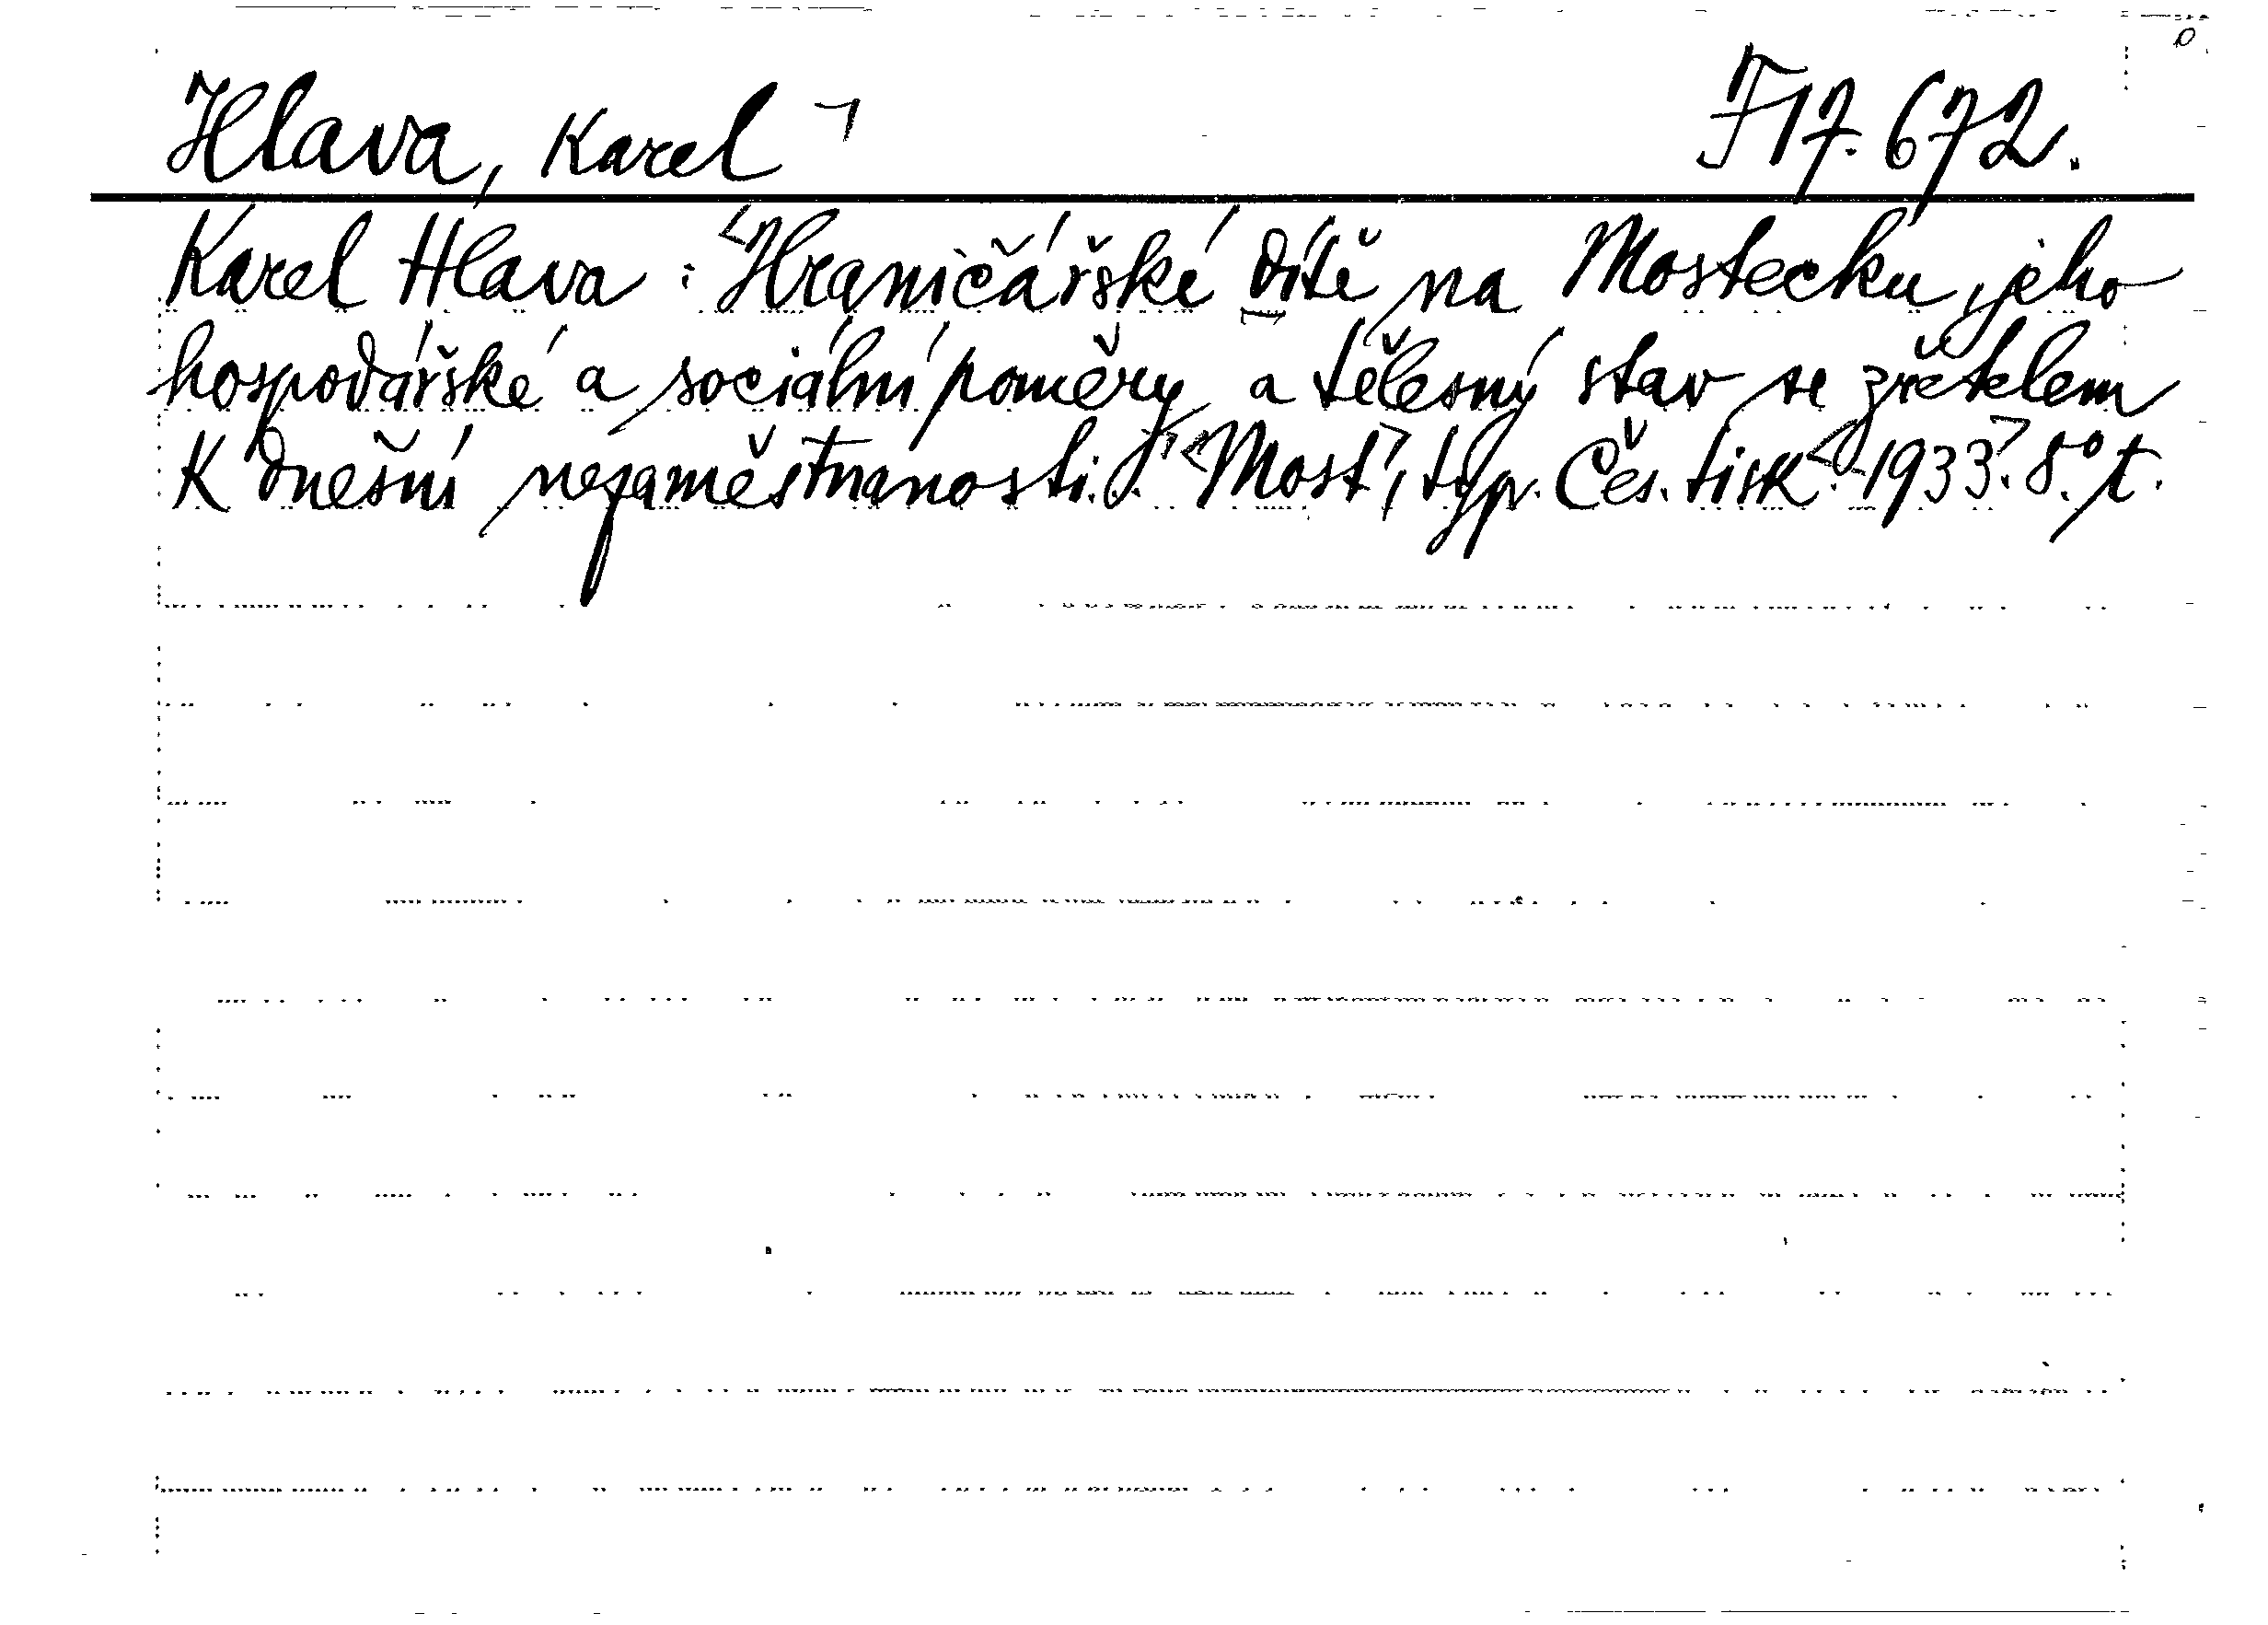 Hlava, Karel ꓶ F 17.672.
Karel Hlava: <Hraničářské dítě na Mostecku, jeho
hospodářské a sociální poměry a tělesný stav se zřetelem
k dnešní nezaměstnanosti. <Most>, typ. Čes. tisk <- 1933>. 8°. t.